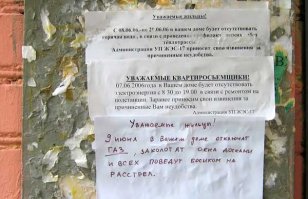 Уважаемые жильцы!
С 08.06.06 - 27.06.06 в вашем доме будет отсутствовать
горячая вода, в связи с
теплотрасс.
Администрация УП ЖЭС-17 приносит свои извинения за
причиненные неудобства.
УВАЖАЕМЫЕ КВАРТИРОСЪЕМЩИКИ!
07.06.2006года в Вашем доме будет отсутствовать
электроэнергия с 8 30 до 19.00 в связи с ремонтом на
подстанции. Заранее приносим свои извинения за
причиненные Вам неудобства.
Администрация УП ЖЭС-17
Уважаемые жильцы!
9 июня в вашем доме отключат
ГАЗ, заколотят окна досками
и всех поведут босиком на
РАССТРЕЛ.